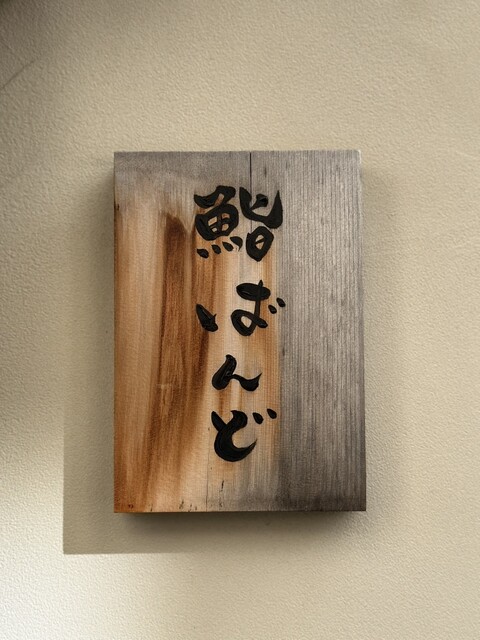 鮨ばんど